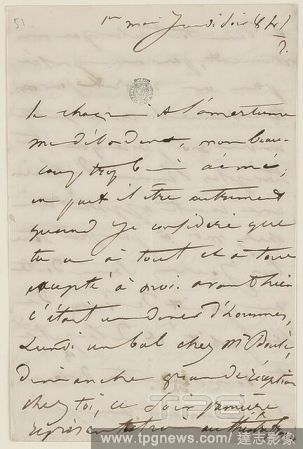 51
1er mai Jeudi soir 8 h ½
?.
le chagrin et l'amertume
me débordent, mon beau-
coup trop bien aimé,
en peut-il être autrement
quand je considère que
tu as à tout et à tous
excepté à moi. avant hier
c'était un dîner d'hommes,
Lundi un bal chez Mr
dimanche grande réception
chez toi, ce soir première
représentation au
TPG
www.tpgnews.com/ 達志影像